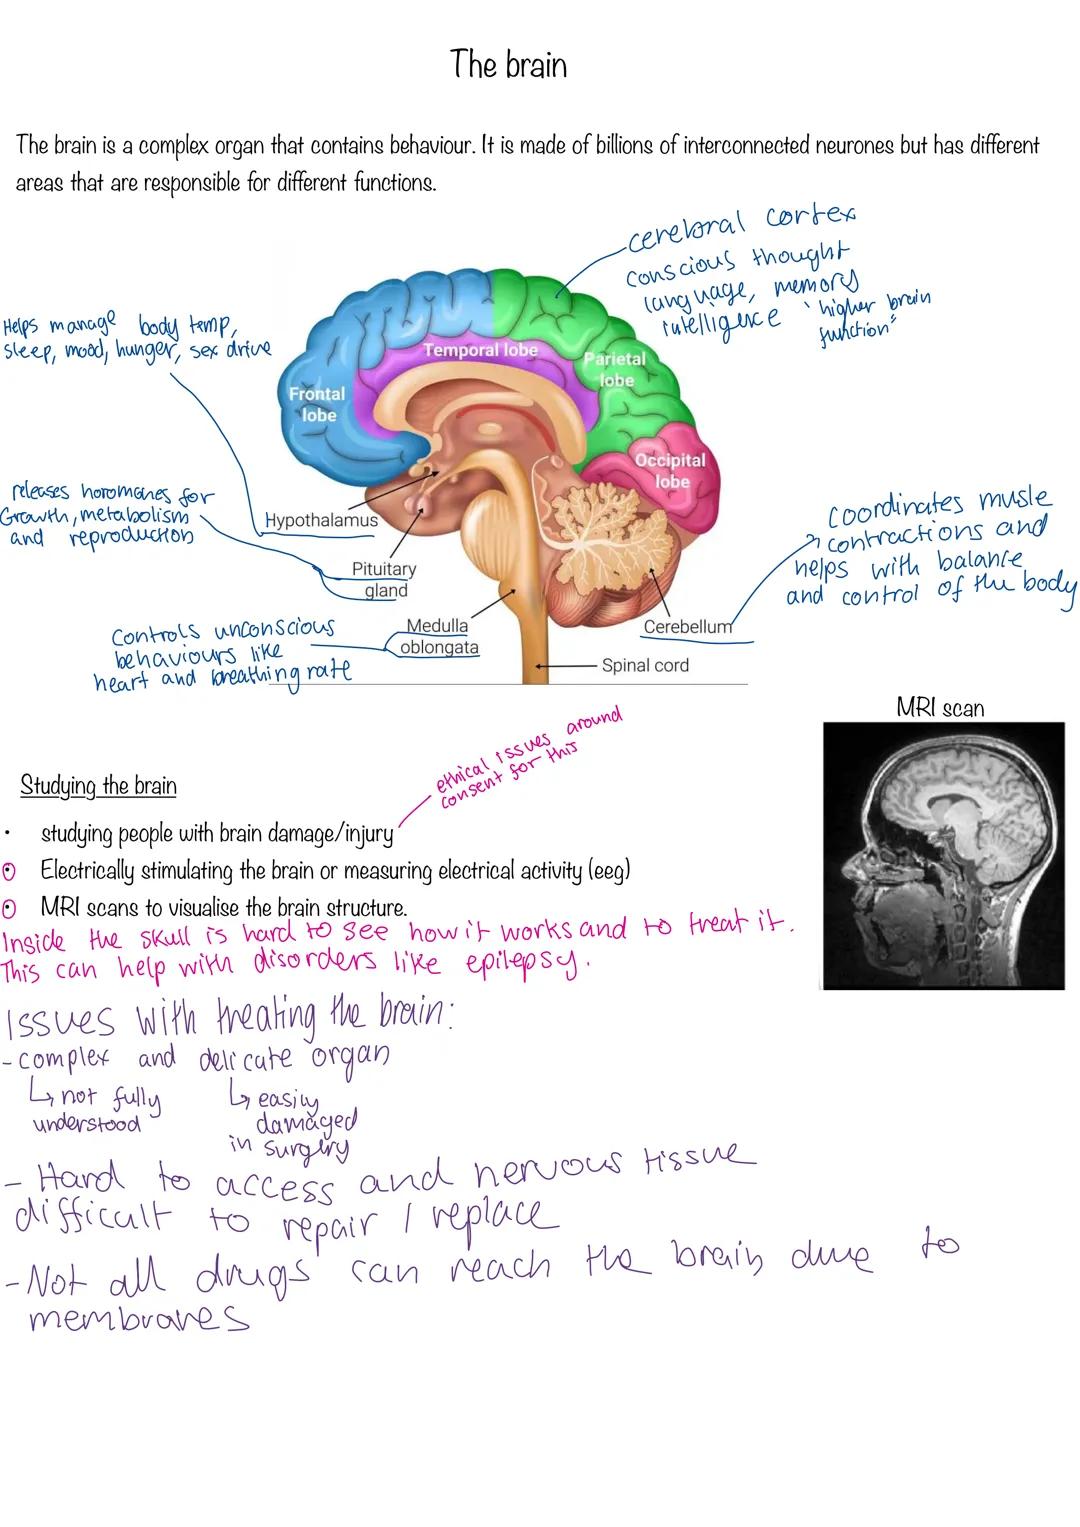 The brain
The brain is a complex organ that contains behaviour. It is made of billions of interconnected neurones but has different
areas that are responsible for different functions.
cerebral cortex
conscious thought
language, memory
intelligence
'higher brain
function"
Helps manage body temp,
sleep, mood, hunger, sex drive
Temporal lobe
Parietal
lobe
Frontal
lobe
Occipital
lobe
releases horomones for
Growth, metabolism
and reproduction
Hypothalamus
Pituitary
gland
coordinates musle
contractions and
helps with balance
and control of the body
controls unconscious
behaviours like
heart and breathing rate
Medulla
oblongata
Cerebellum
Spinal cord
MRI scan
ethical issues around
consent for this
Studying the brain
• studying people with brain damage/injury
• Electrically stimulating the brain or measuring electrical activity (eeg)
• MRI scans to visualise the brain structure.
Inside the skull is hard to see how it works and to treat it.
This can help with disorders like epilepsy.
Issues with treating the brain:
- complex and delicate organ
↳ not fully
understood
↳ easily
damaged
in surgery
- Hard to access and nervous tissue
difficult to repair / replace
- Not all drugs can reach the brain due to
membranes